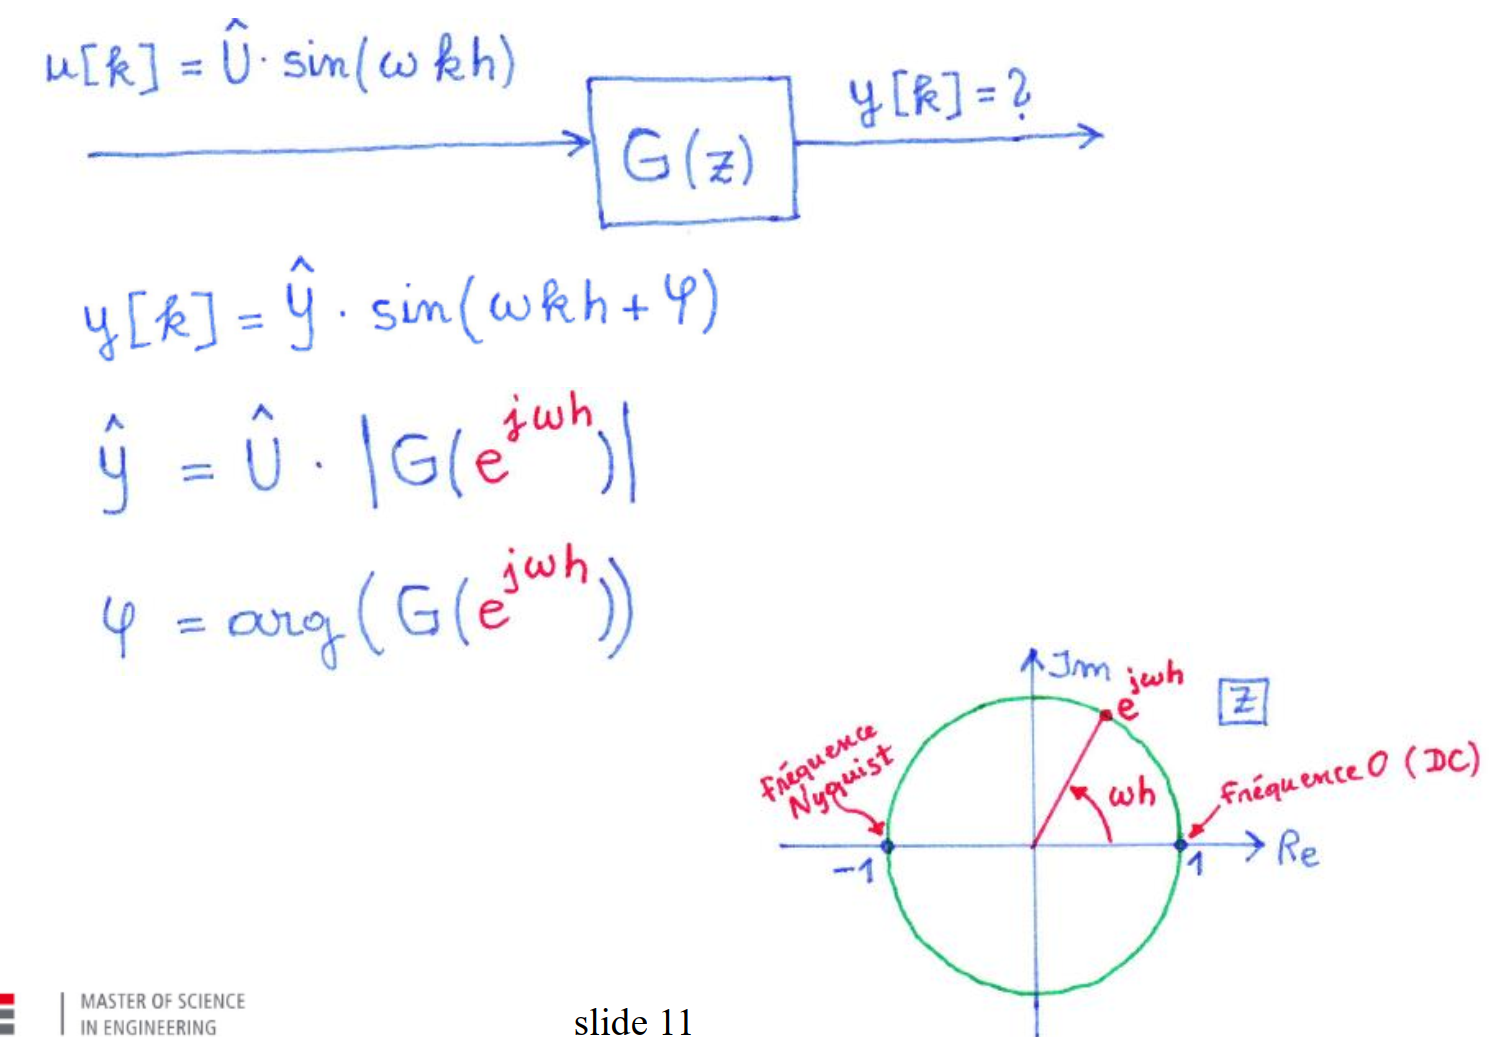 u[k] = Û · sin(ωkh)
y[k] = ?
G(z)
y[k] = ŷ · sin(ωkh + φ)
ŷ = Û · |G(e^{jωh})|
φ = arg(G(e^{jωh}))
Im
e^{jωh}
z
Fréquence
Nyquist
ωh
Fréquence 0 (DC)
-1
1
Re
MASTER OF SCIENCE
IN ENGINEERING
slide 11